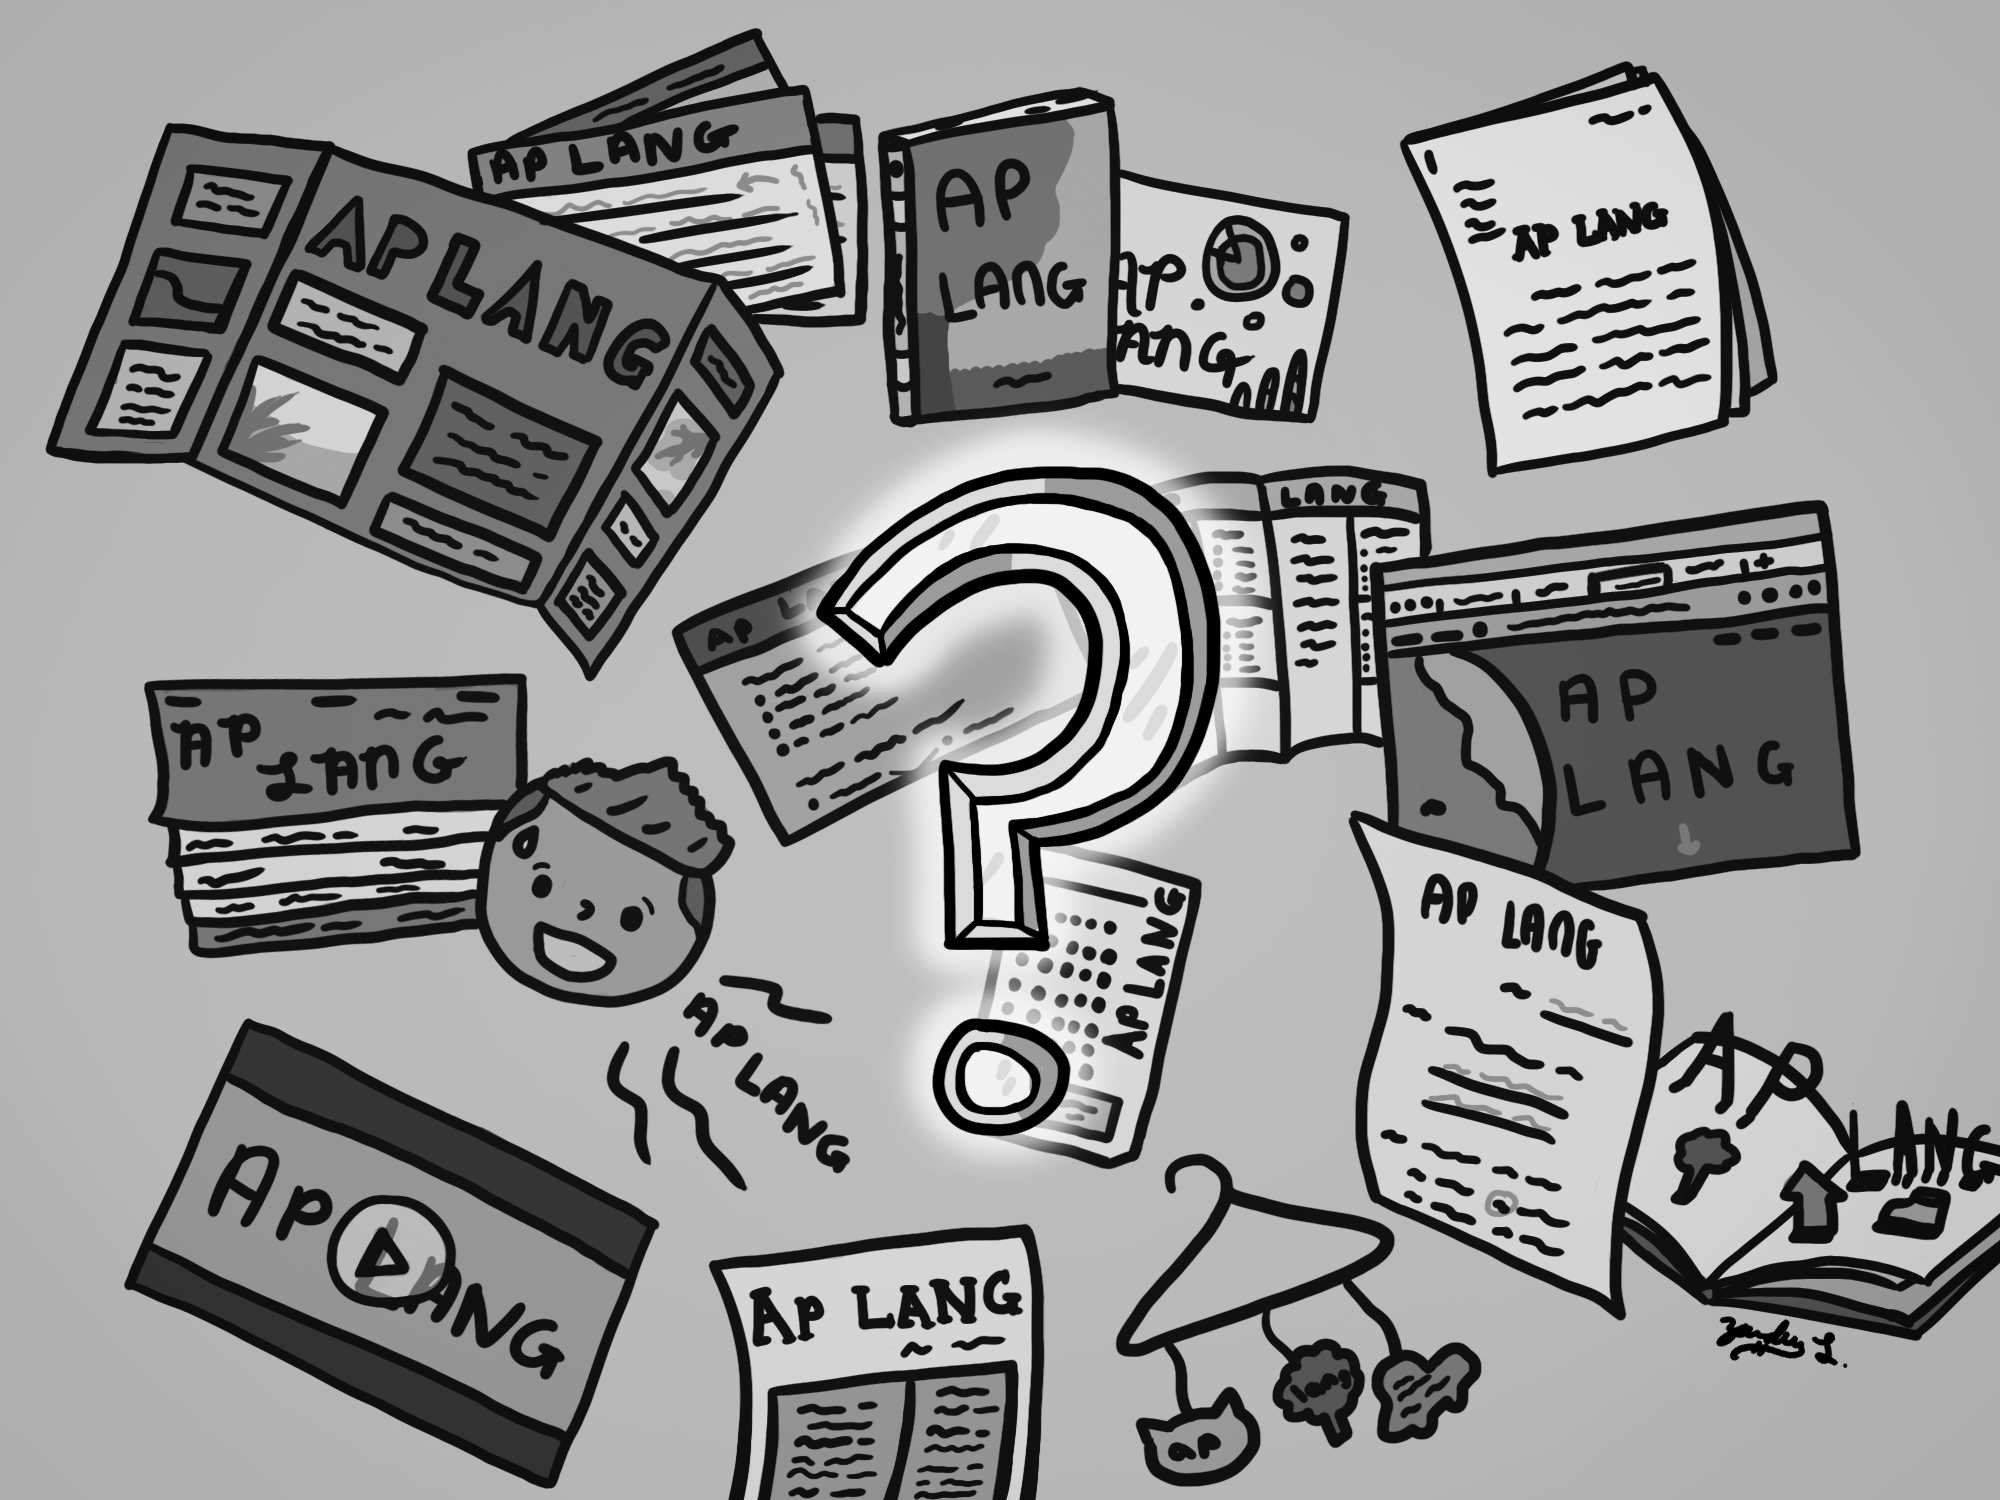 AP LANG
AP LANG
AP
LANG
AP
LANG
AP LANG
LANG
AP
AP
LANG
AP
LANG
AP LANG
AP LANG
AP LANG
AP LANG
AP
LANG
AP LANG
AP LANG
AP
?